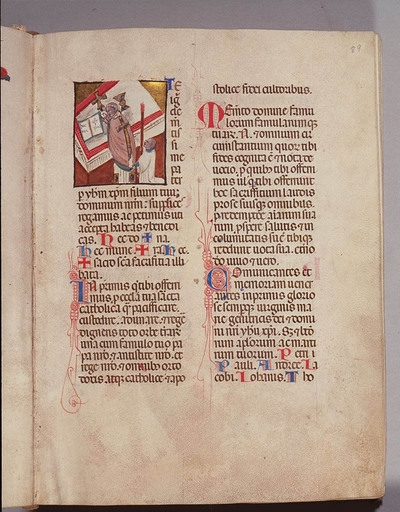 TE
ig
de
ti
si
me
pa
ter
p yhm xpm filium tuum
dominum nrm. supplices
rogamus ac petimus uti
accepta habeas et benedi
cas. Hec do + na
hec mune + ra hec
+ sacrosca sacrificia illi
bata.
In primis q tibi offeri
mus p ecclia tua sacta
catholica qm pacificare.
custodire. adunare. et rege
digneris toto orbe traru
una cum famulo tuo pa
pa nro. et antistite nro. et
rege nro. et omnibus orto
doxis. atq catholice et apo
stolice fidei cultoribus.
Memento domine famu
lorum famularumq
tuar. N. et omnium cir
cumstantium quor tibi
fides cognita e et nota de
uocio. p quib tibi offeri
mus ul qui tibi offerunt
hoc sacrificium laudis
pro se suisq omnibus.
p redemptoe animarum sua
rum. p spe salutis et in
columitatis sue tibiq
reddunt uota sua. etno
do uiuo et uero.
Communicantes et
memoriam uener
antes inprimis glorio
se semp uirginis ma
rie genitricis dei et domi
ni nri yhu xpi. Sz et bto
rum aplorum ac marti
rum tuorum. Petri
Pauli. Andree. Ia
cobi. Iohannis. Tho